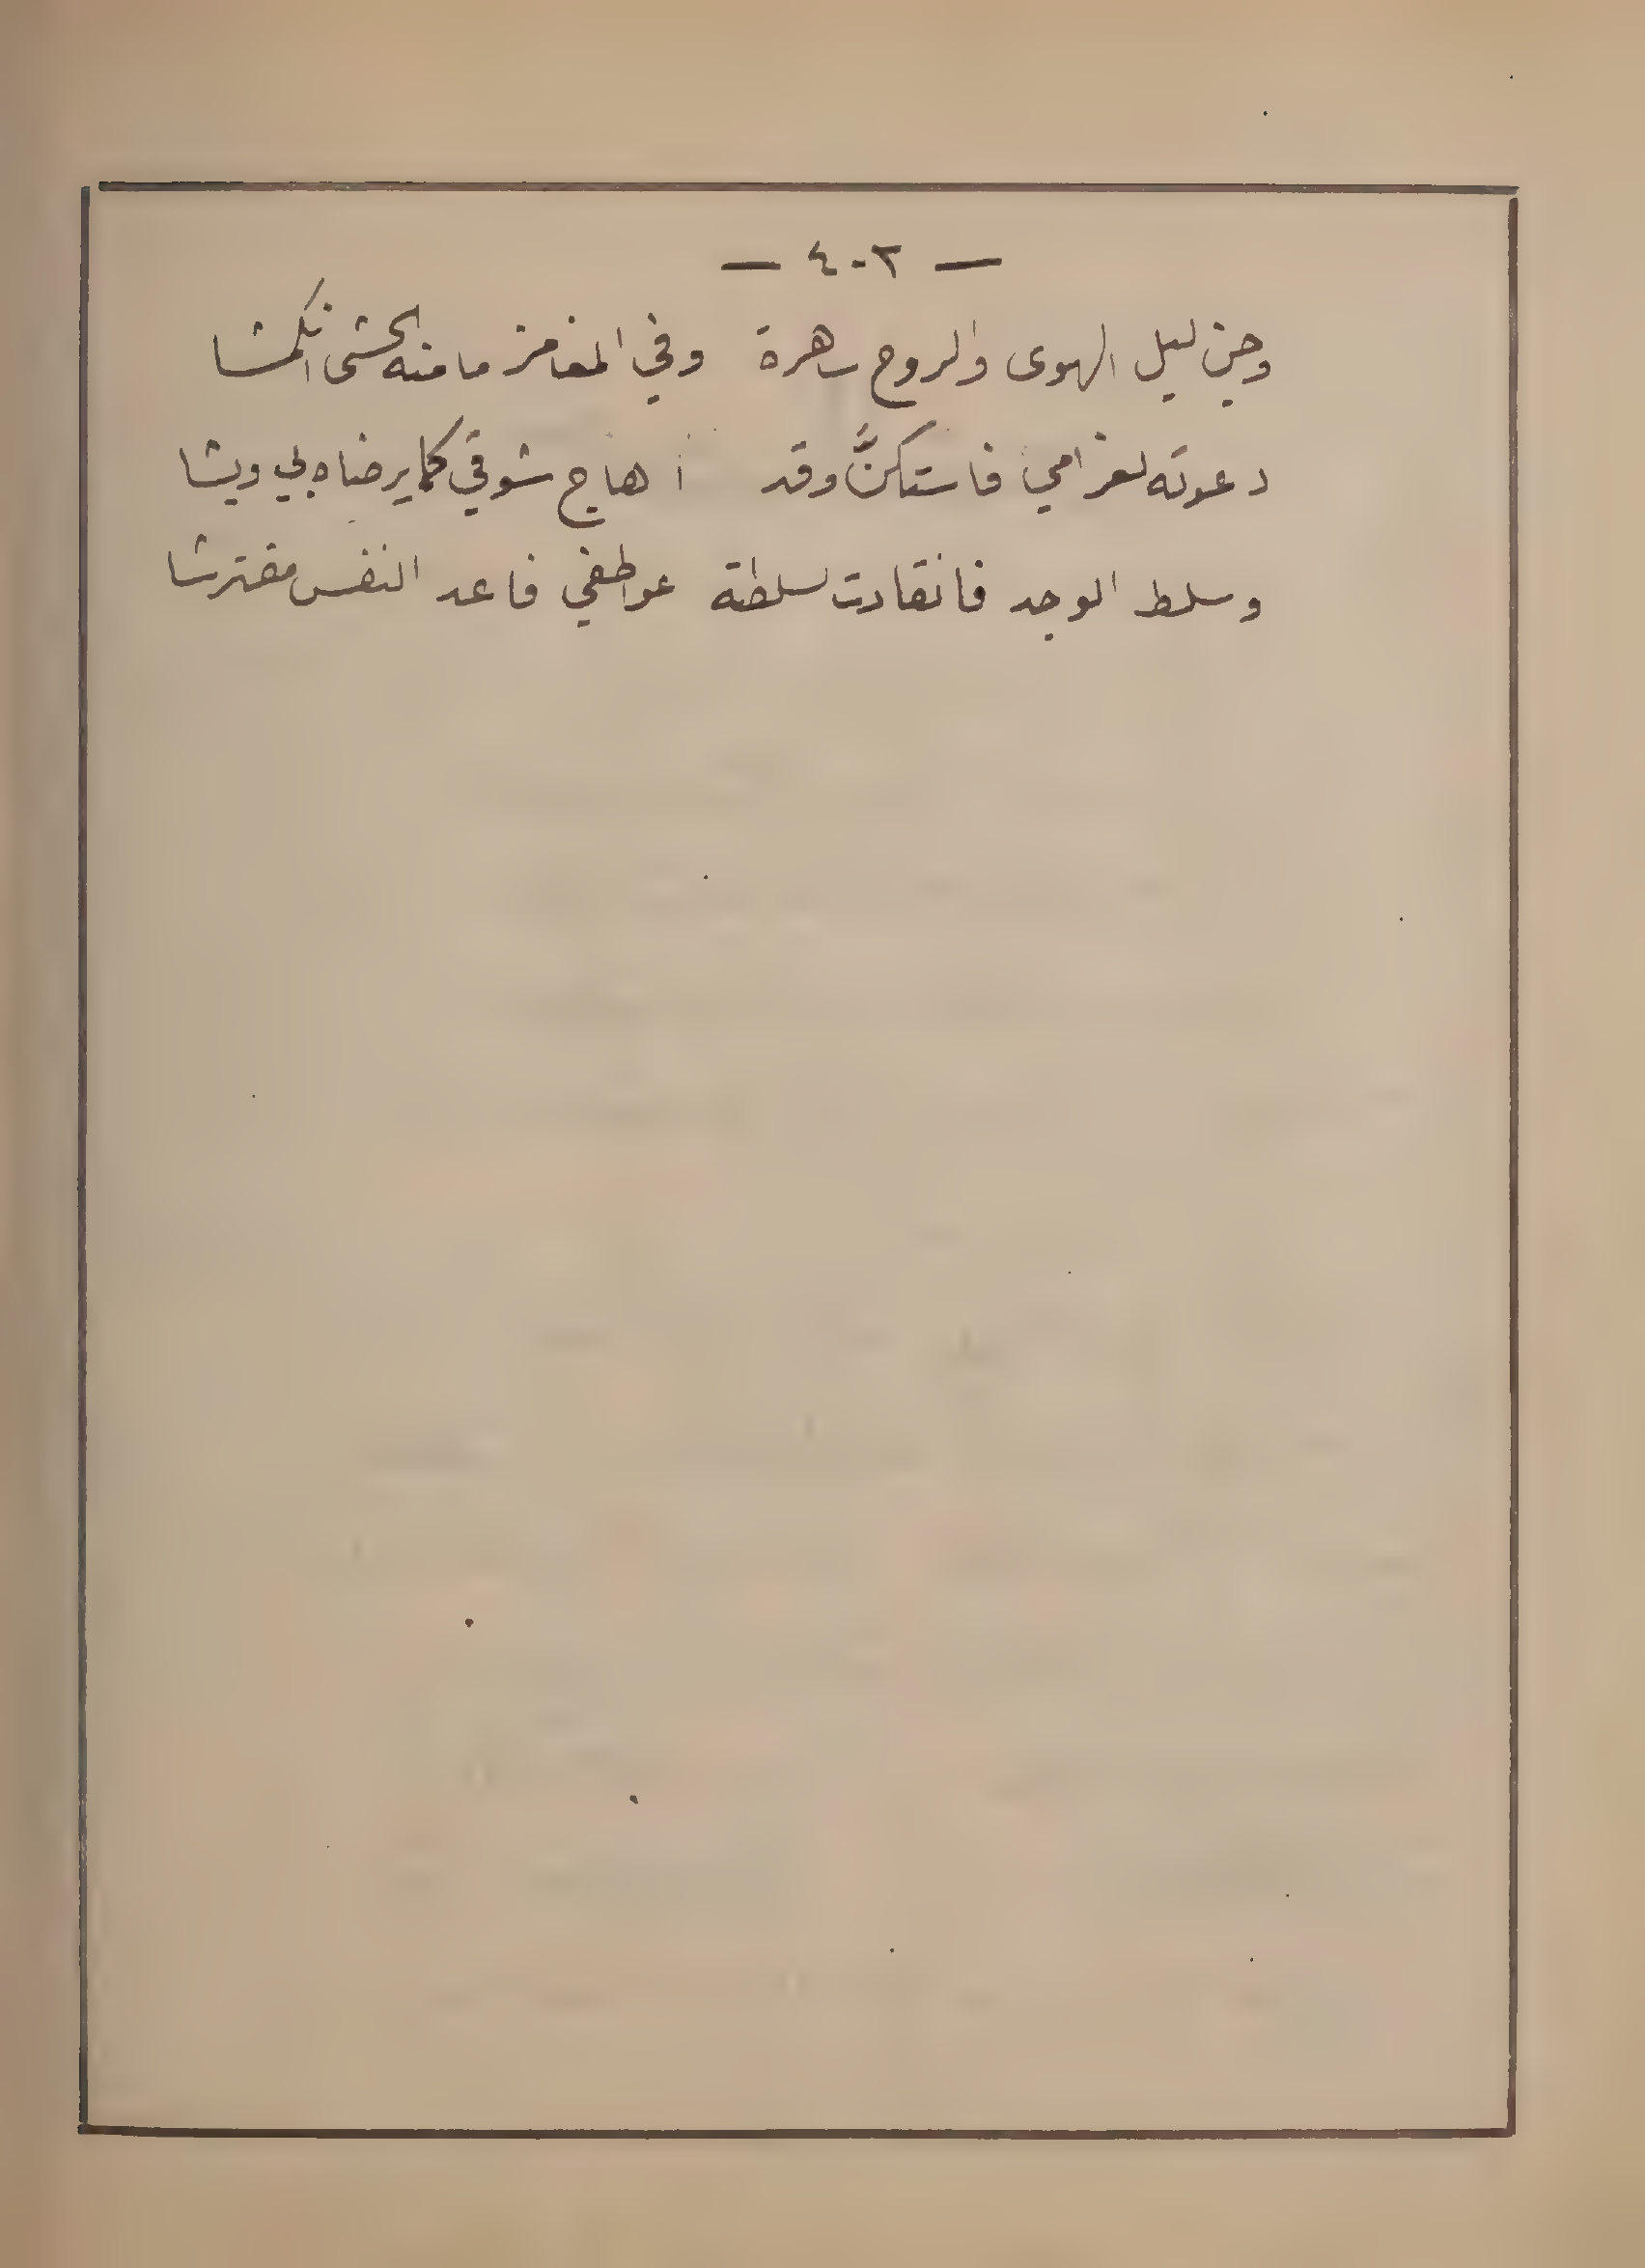 — ٤٠٢ —
وجن ليل الهوى والروح ساهرة وفي المغامز ما منه الحشى انكمشا
دعوته لغرامي فاستكنَّ وقد أهاج شوقي كما يرضاه بي ويشا
وسلط الوجد فانقادت لسلطته عواطفي فاعد النفس مفترشا